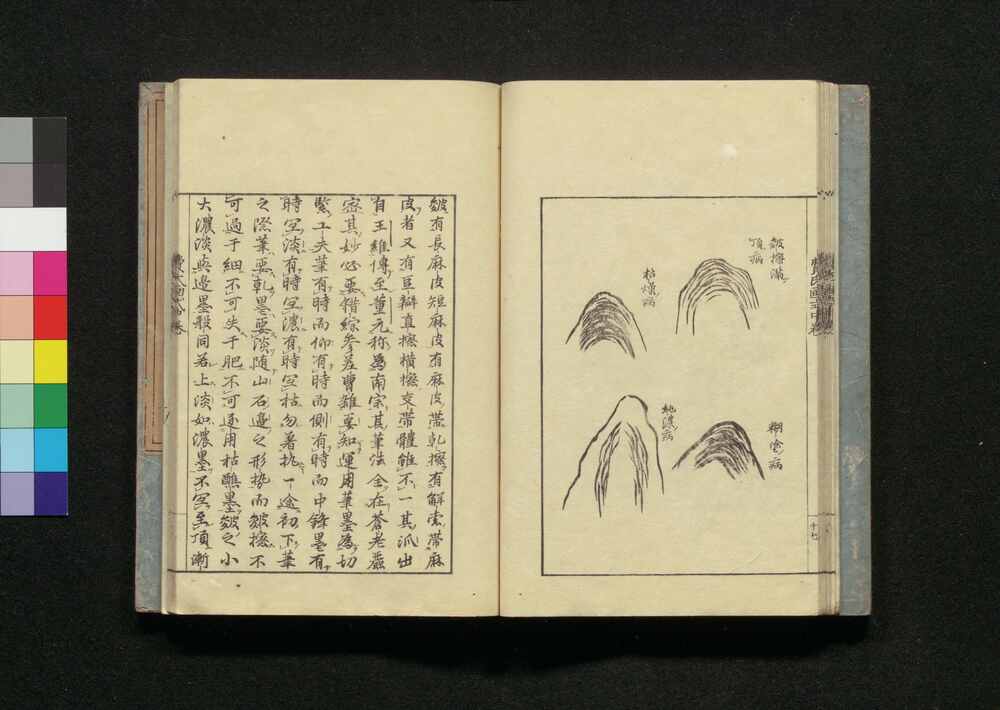 皴擦滿
頂病
枯燥病
糊塗病
純濃病
十七
皴有長麻皮短麻皮有麻皮帶乾擦有解索帶麻
皮者又有豆瓣直擦橫擦交帶體雖不一其派出
自王維傳至董元称為南宗其筆法全在蒼老嚴
密其妙必要錯綜參差曹雜要知運用筆墨為切
緊工夫筆有時而仰有時而側有時而中鋒墨有
時宜淡有時宜濃有時宜枯勿著執一途初下筆
之際筆要乾墨要淡随山石邉之形势而皴擦不
可過于細不可失于肥不可遂用枯醮墨皴之小
大濃淡與邉墨般同若上淡如濃墨不宜至頂漸